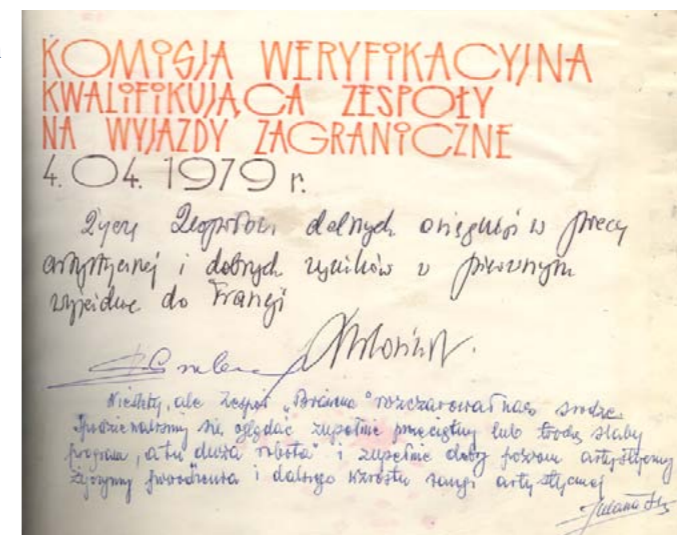 KOMISJA WERYFIKACYJNA
KWALIFIKUJĄCA ZESPOŁY
NA WYJAZDY ZAGRANICZNE
4.04.1979 r.
Życzę Zespołowi dalszych osiągnięć w pracy
artystycznej i dobrych wyników w
wyjeździe do Francji
Niestety, ale Zespół „ " rozczarował nas srodze.
Spodziewaliśmy się oglądać zupełnie przeciętny lub trochę słaby
program, a tu „duża robota" i zupełnie dobry poziom artystyczny
Życzymy powodzenia i dalszego wzrostu rangi artystycznej